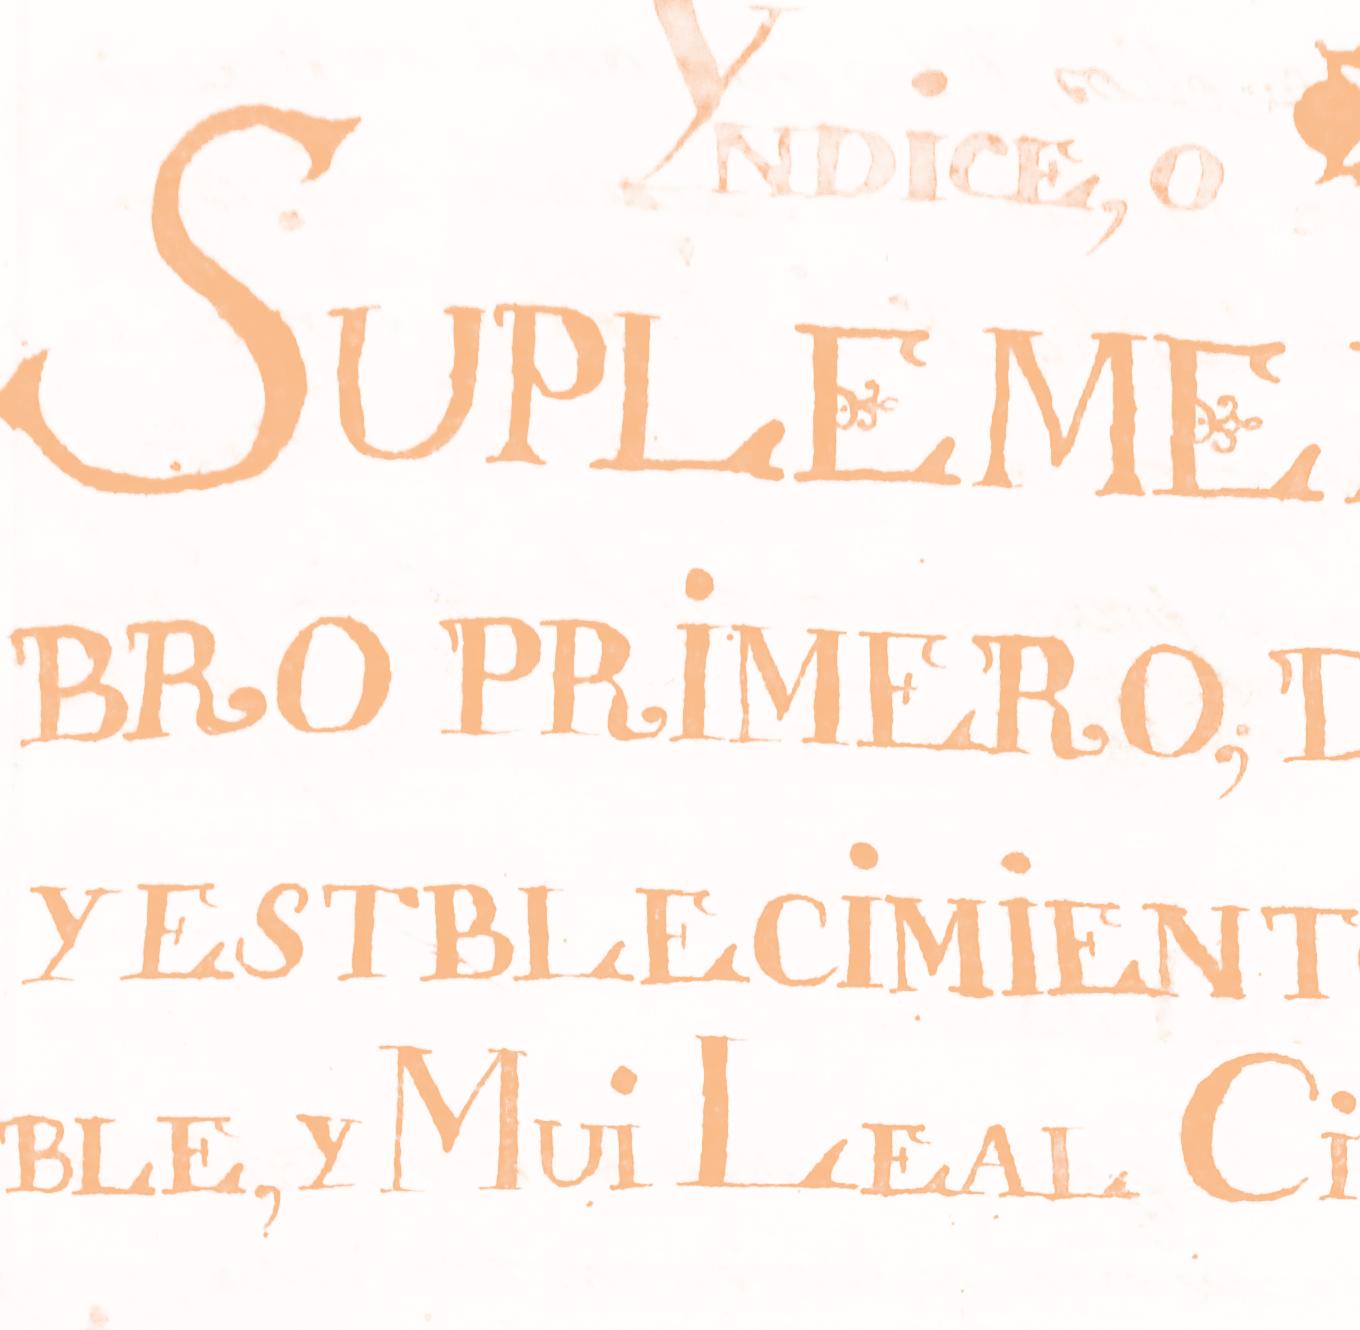 YNDICE, O
SUPLEME
BRO PRIMERO, D
Y ESTBLECIMIENTO
BLE, Y MUI LEAL CI